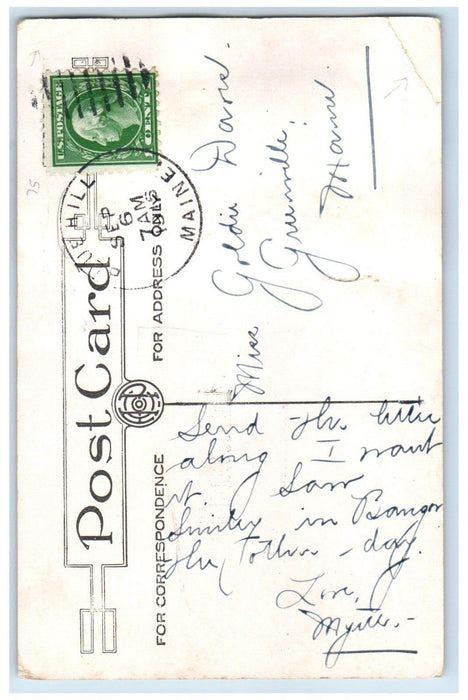 U.S. POSTAGE
1 CENT
UEHILL
MAINE
SEP
6
7 AM
Post Card
FOR ADDRESS ONLY
FOR CORRESPONDENCE
Miss Goldie Davis.
Greenville,
Maine
Send the letter
along I want
it. Saw
Smiley in Bangor
the tother - day.
Love,